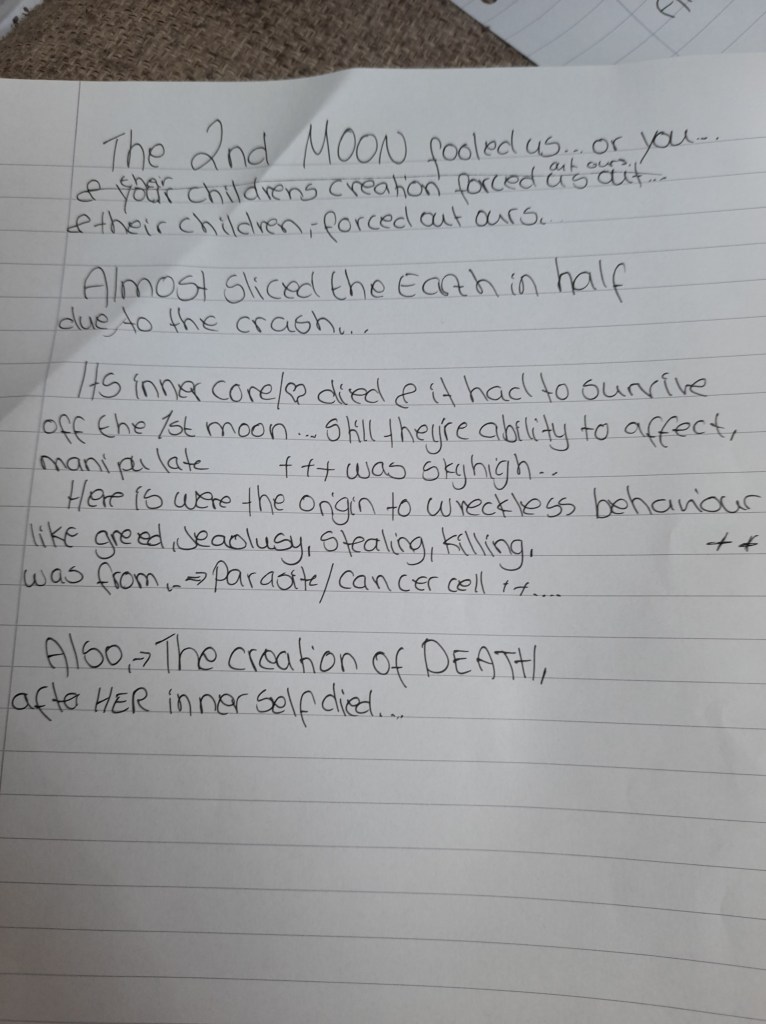 The 2nd MOON fooled us... or you...
& their childrens creation forced us out... out ours.
& their children, forced out ours.
Almost sliced the Earth in half
due, to the crash...
Its inner core/♡ died & it had to survive
off the 1st moon... Still they're ability to affect,
manipulate +++ was skyhigh..
Here is were the origin to wreckless behaviour
like greed, Jeaolusy, Stealing, Killing, ++
was from.. → Paracite/cancer cell ++....
Also, → The creation of DEATH,
afte HER inner self died...